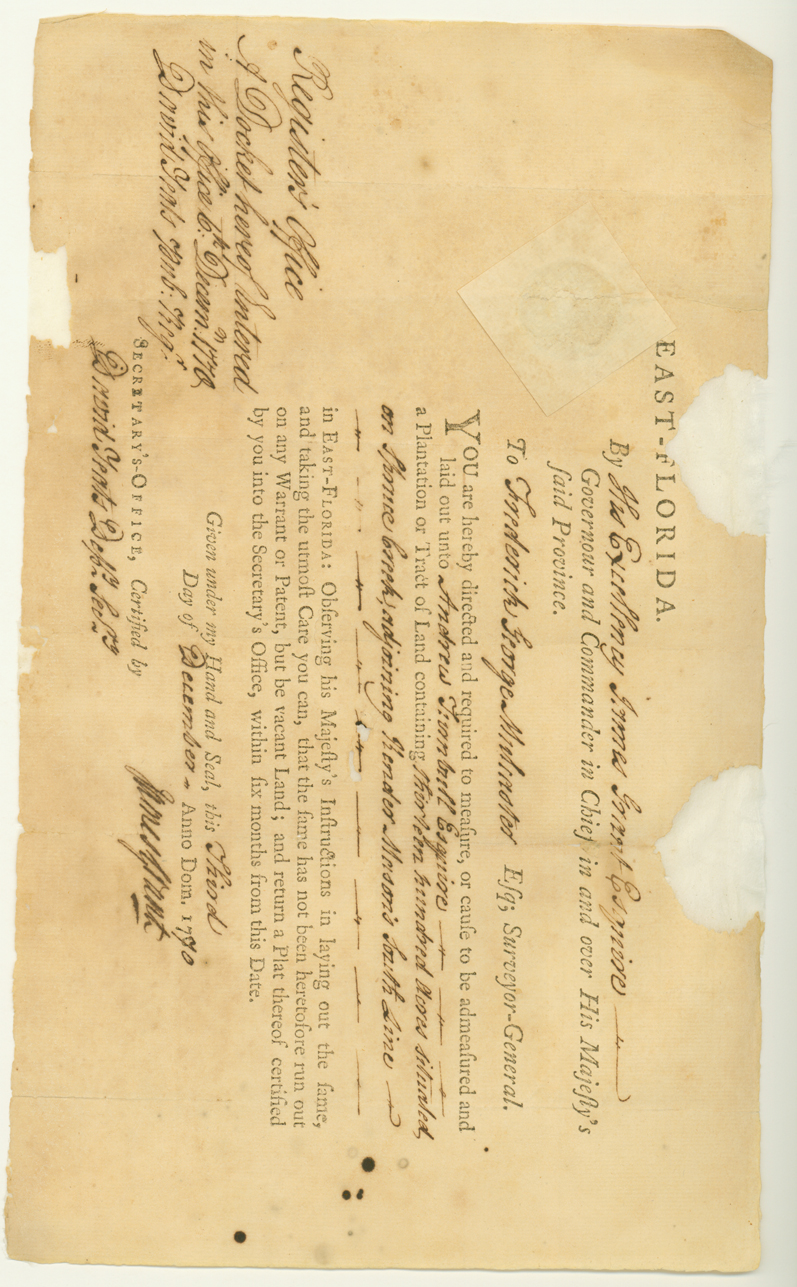 EAST-FLORIDA.
By His Excellency James Grant Esquire
Governour and Commander in Chief in and over His Majeſty's
ſaid Province.
To Frederick George Mulcaster Eſq; Surveyor-General.
YOU are hereby directed and required to meaſure, or cauſe to be admeaſured and
laid out unto Andrew Turnbull Esquire
a Plantation or Tract of Land containing thirteen hundred Acres situated
on Spruce Creek, adjoining Kender Mason's South Line
in EAST-FLORIDA: Obſerving his Majeſty's Inſtructions in laying out the ſame,
and taking the utmoſt Care you can, that the ſame has not been heretofore run out
on any Warrant or Patent, but be vacant Land; and return a Plat thereof certified
by you into the Secretary's Office, within ſix months from this Date.
Given under my Hand and Seal, this Third
Day of December Anno Dom. 1770
James Grant
SECRETARY'S-OFFICE, Certified by
David Yeats Depy. Secry
Register's Office
A Docket hereof Entered
in this Office 6th. Decem. 1770
David Yeats